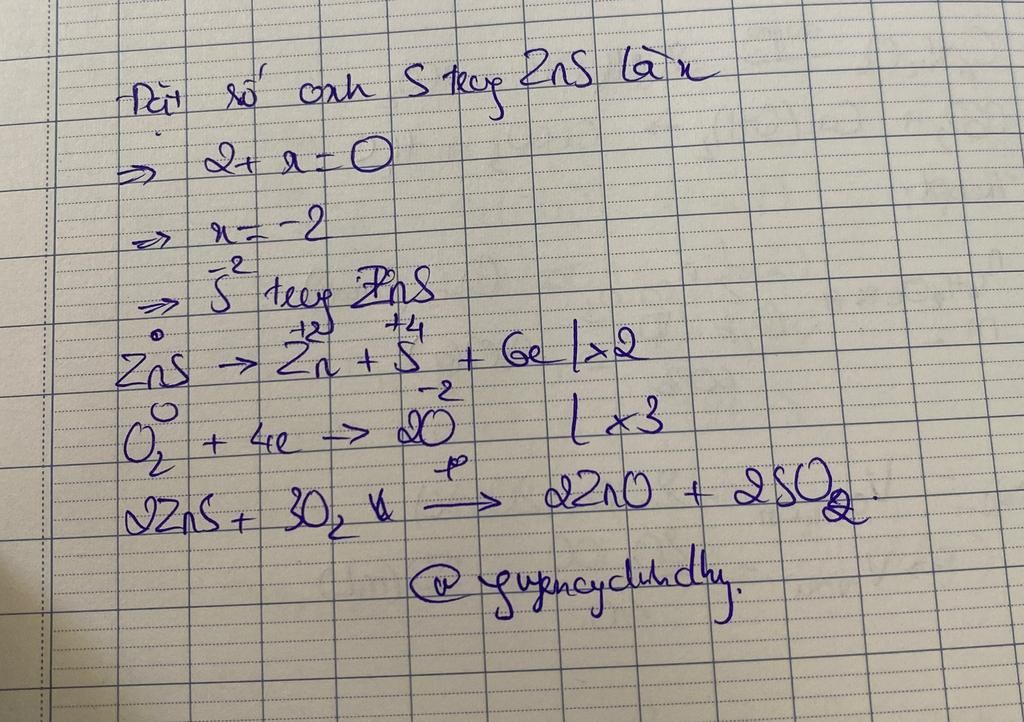 Đặt số oxh S trong ZnS là x
⇒ 2 + x = 0
⇒ x = -2
⇒ S⁻² trong ZnS
ZnS⁰ → Zn⁺² + S⁺⁴ + 6e | x2
O₂⁰ + 4e → 2O⁻² | x3
2ZnS + 3O₂ →(t°) 2ZnO + 2SO₂.